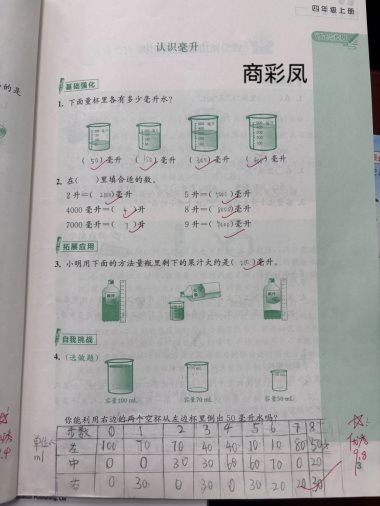 四年级上册
认识毫升
商彩凤
基础强化
1. 下面量杯里各有多少毫升水?
( 50 )毫升 ( 150 )毫升 ( 300 )毫升 ( )毫升
2. 在( )里填合适的数。
2升=( 2000 )毫升 5升=( 5000 )毫升
4000毫升=( 4 )升 8升=( 8000 )毫升
7000毫升=( 7 )升 9升=( 9000 )毫升
拓展应用
3. 小明用下面的方法量瓶里剩下的果汁大约是( )毫升。
自我挑战
4. (选做题)
容量100 mL 容量70 mL 容量50 mL
你能利用右边的两个空杯从左边杯里倒出50毫升水吗?
步数 0 1 2 3 4 5 6 7 8
单位: ml
左 100 70 70 40 40 10 10 80 50
中 0 0 30 30 60 60 70 0 20
右 0 30 0 30 0 30 20 20 30
9.8